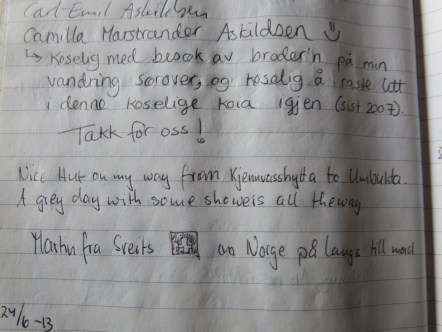 Carl-Emil Askildsen
Camilla Marstrander Askildsen
↳ Koselig med besøk av broder'n på min
vandring sørover, og koselig å raste litt
i denne koselige koia igjen (sist 2007).
Takk for oss!
Nice Hut on my way from Kjennvasshytta to Umbukta.
A grey day with some showeis all theway
Martin fra Sveits an Norge på langs till nord
24/6-13